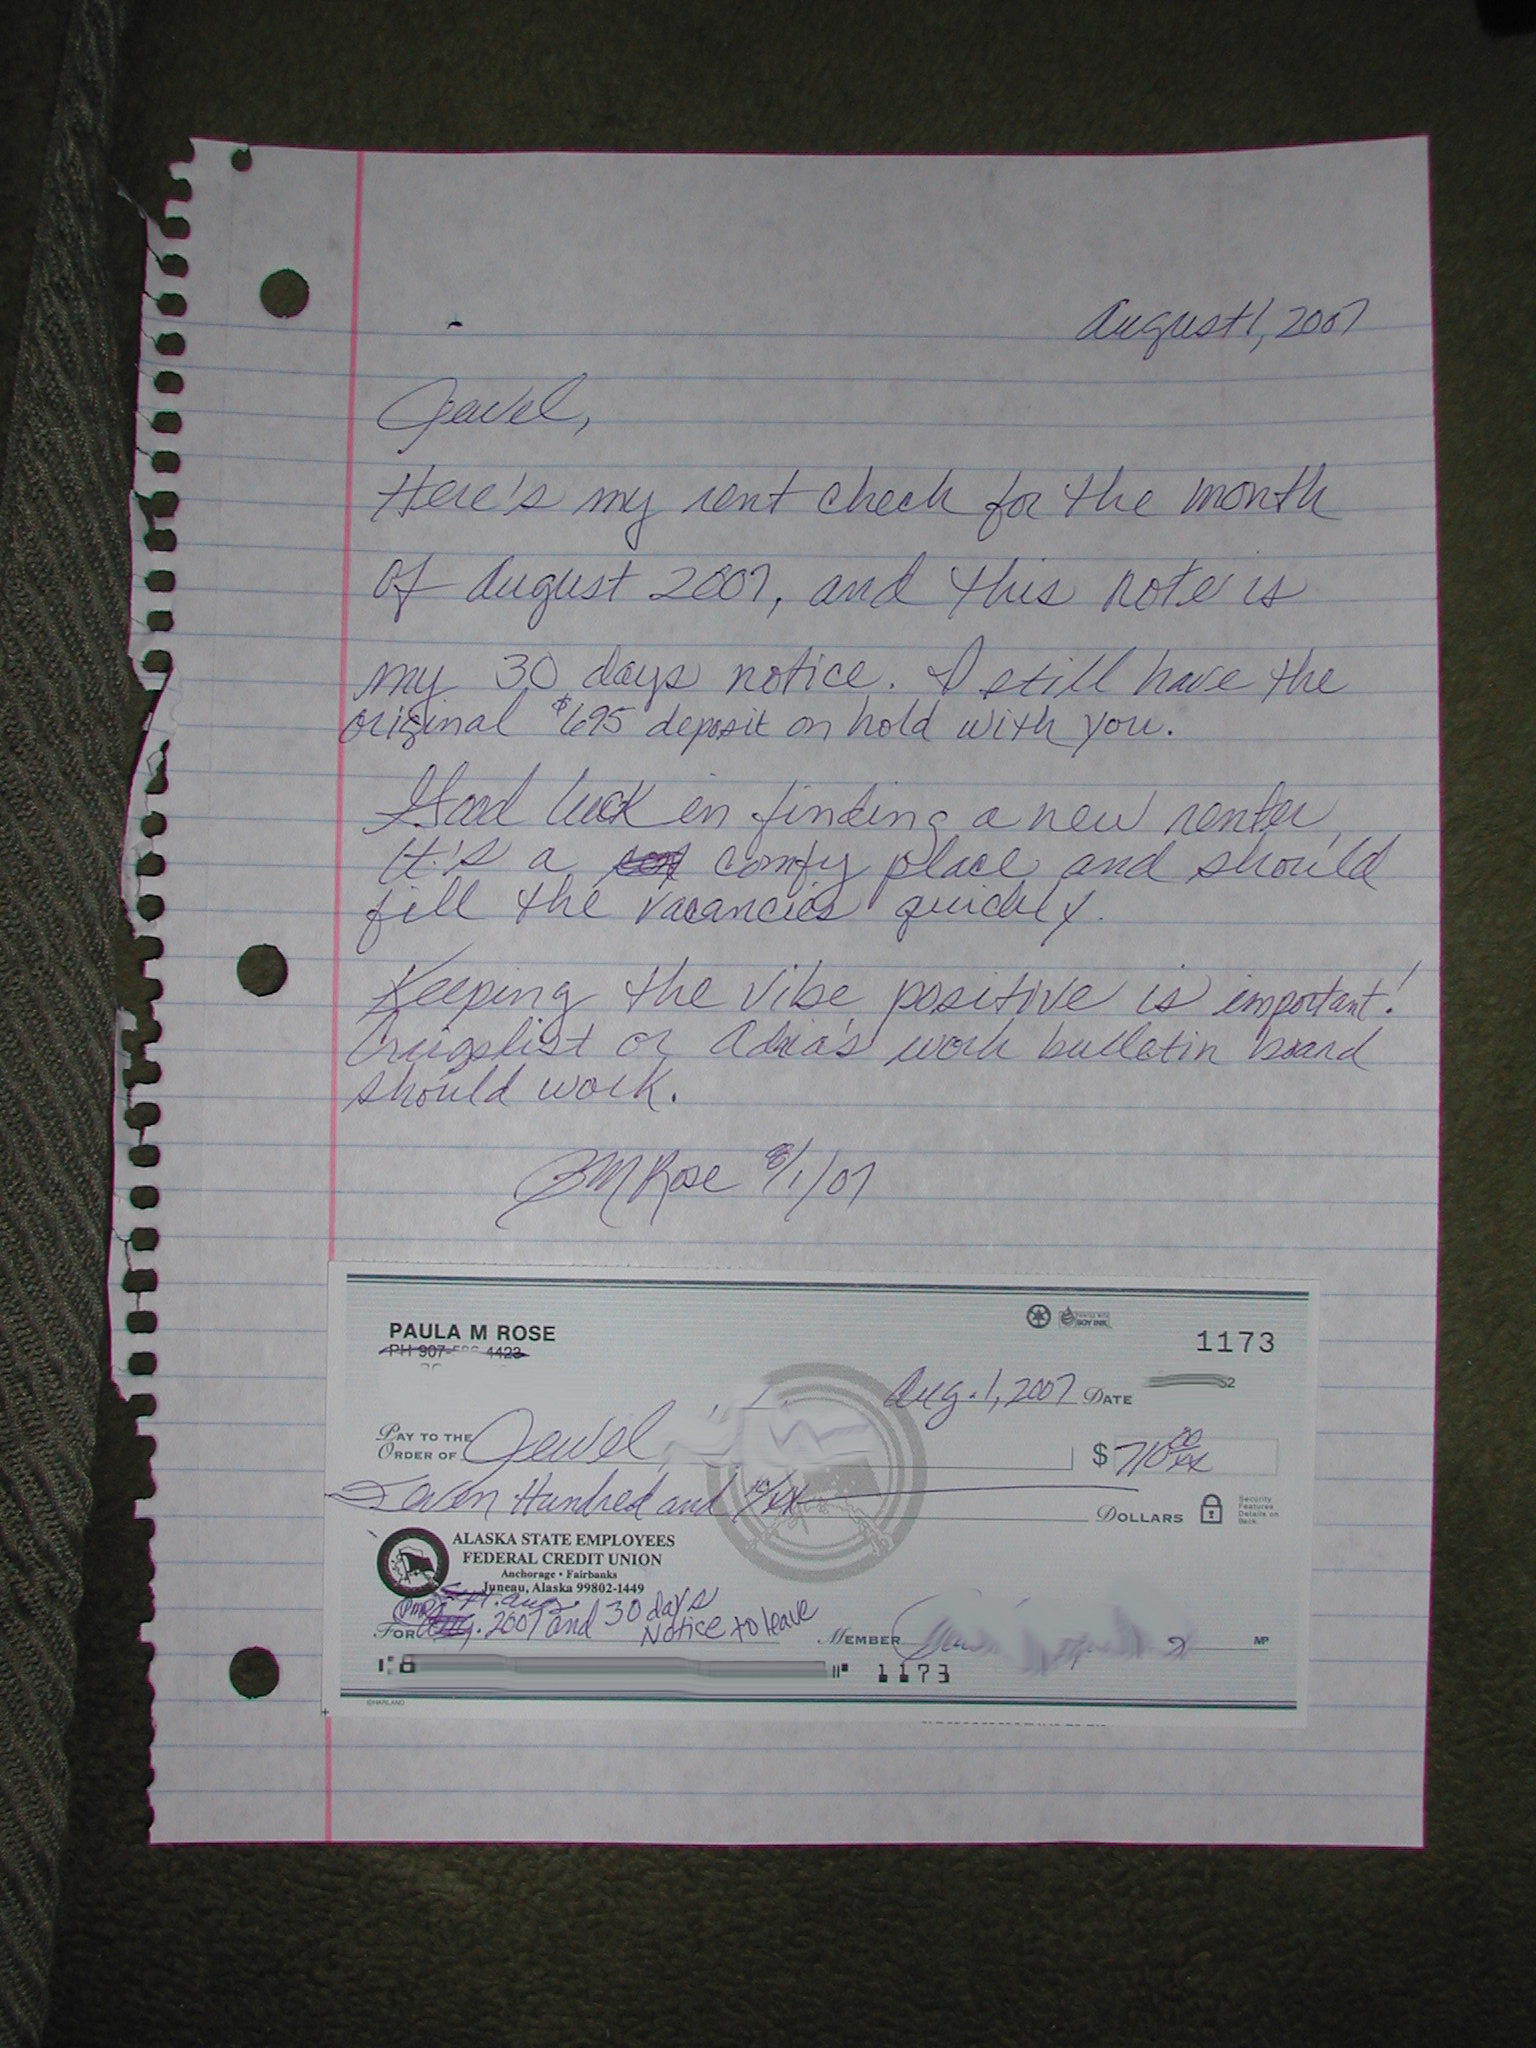 August 1, 2007
Jewel,
Here's my rent check for the month
of August 2007, and this note is
my 30 days notice. I still have the
original $695 deposit on hold with you.
Good luck in finding a new renter,
it's a comfy place and should
fill the vacancies quickly.
Keeping the vibe positive is important!
Craigslist or Adria's work bulletin board
should work.
PM Rose 8/1/07
PAULA M ROSE
PH 907- 4423
SOY INK
1173
Aug. 1, 2007 DATE
PAY TO THE ORDER OF Jewel $ 710 00/xx
Seven Hundred and 10/xx DOLLARS
Security Features Details on Back.
ALASKA STATE EMPLOYEES
FEDERAL CREDIT UNION
Anchorage • Fairbanks
Juneau, Alaska 99802-1449
Aug.
FOR 2007 and 30 days
Notice to leave
MEMBER MP
1173
©HARLAND